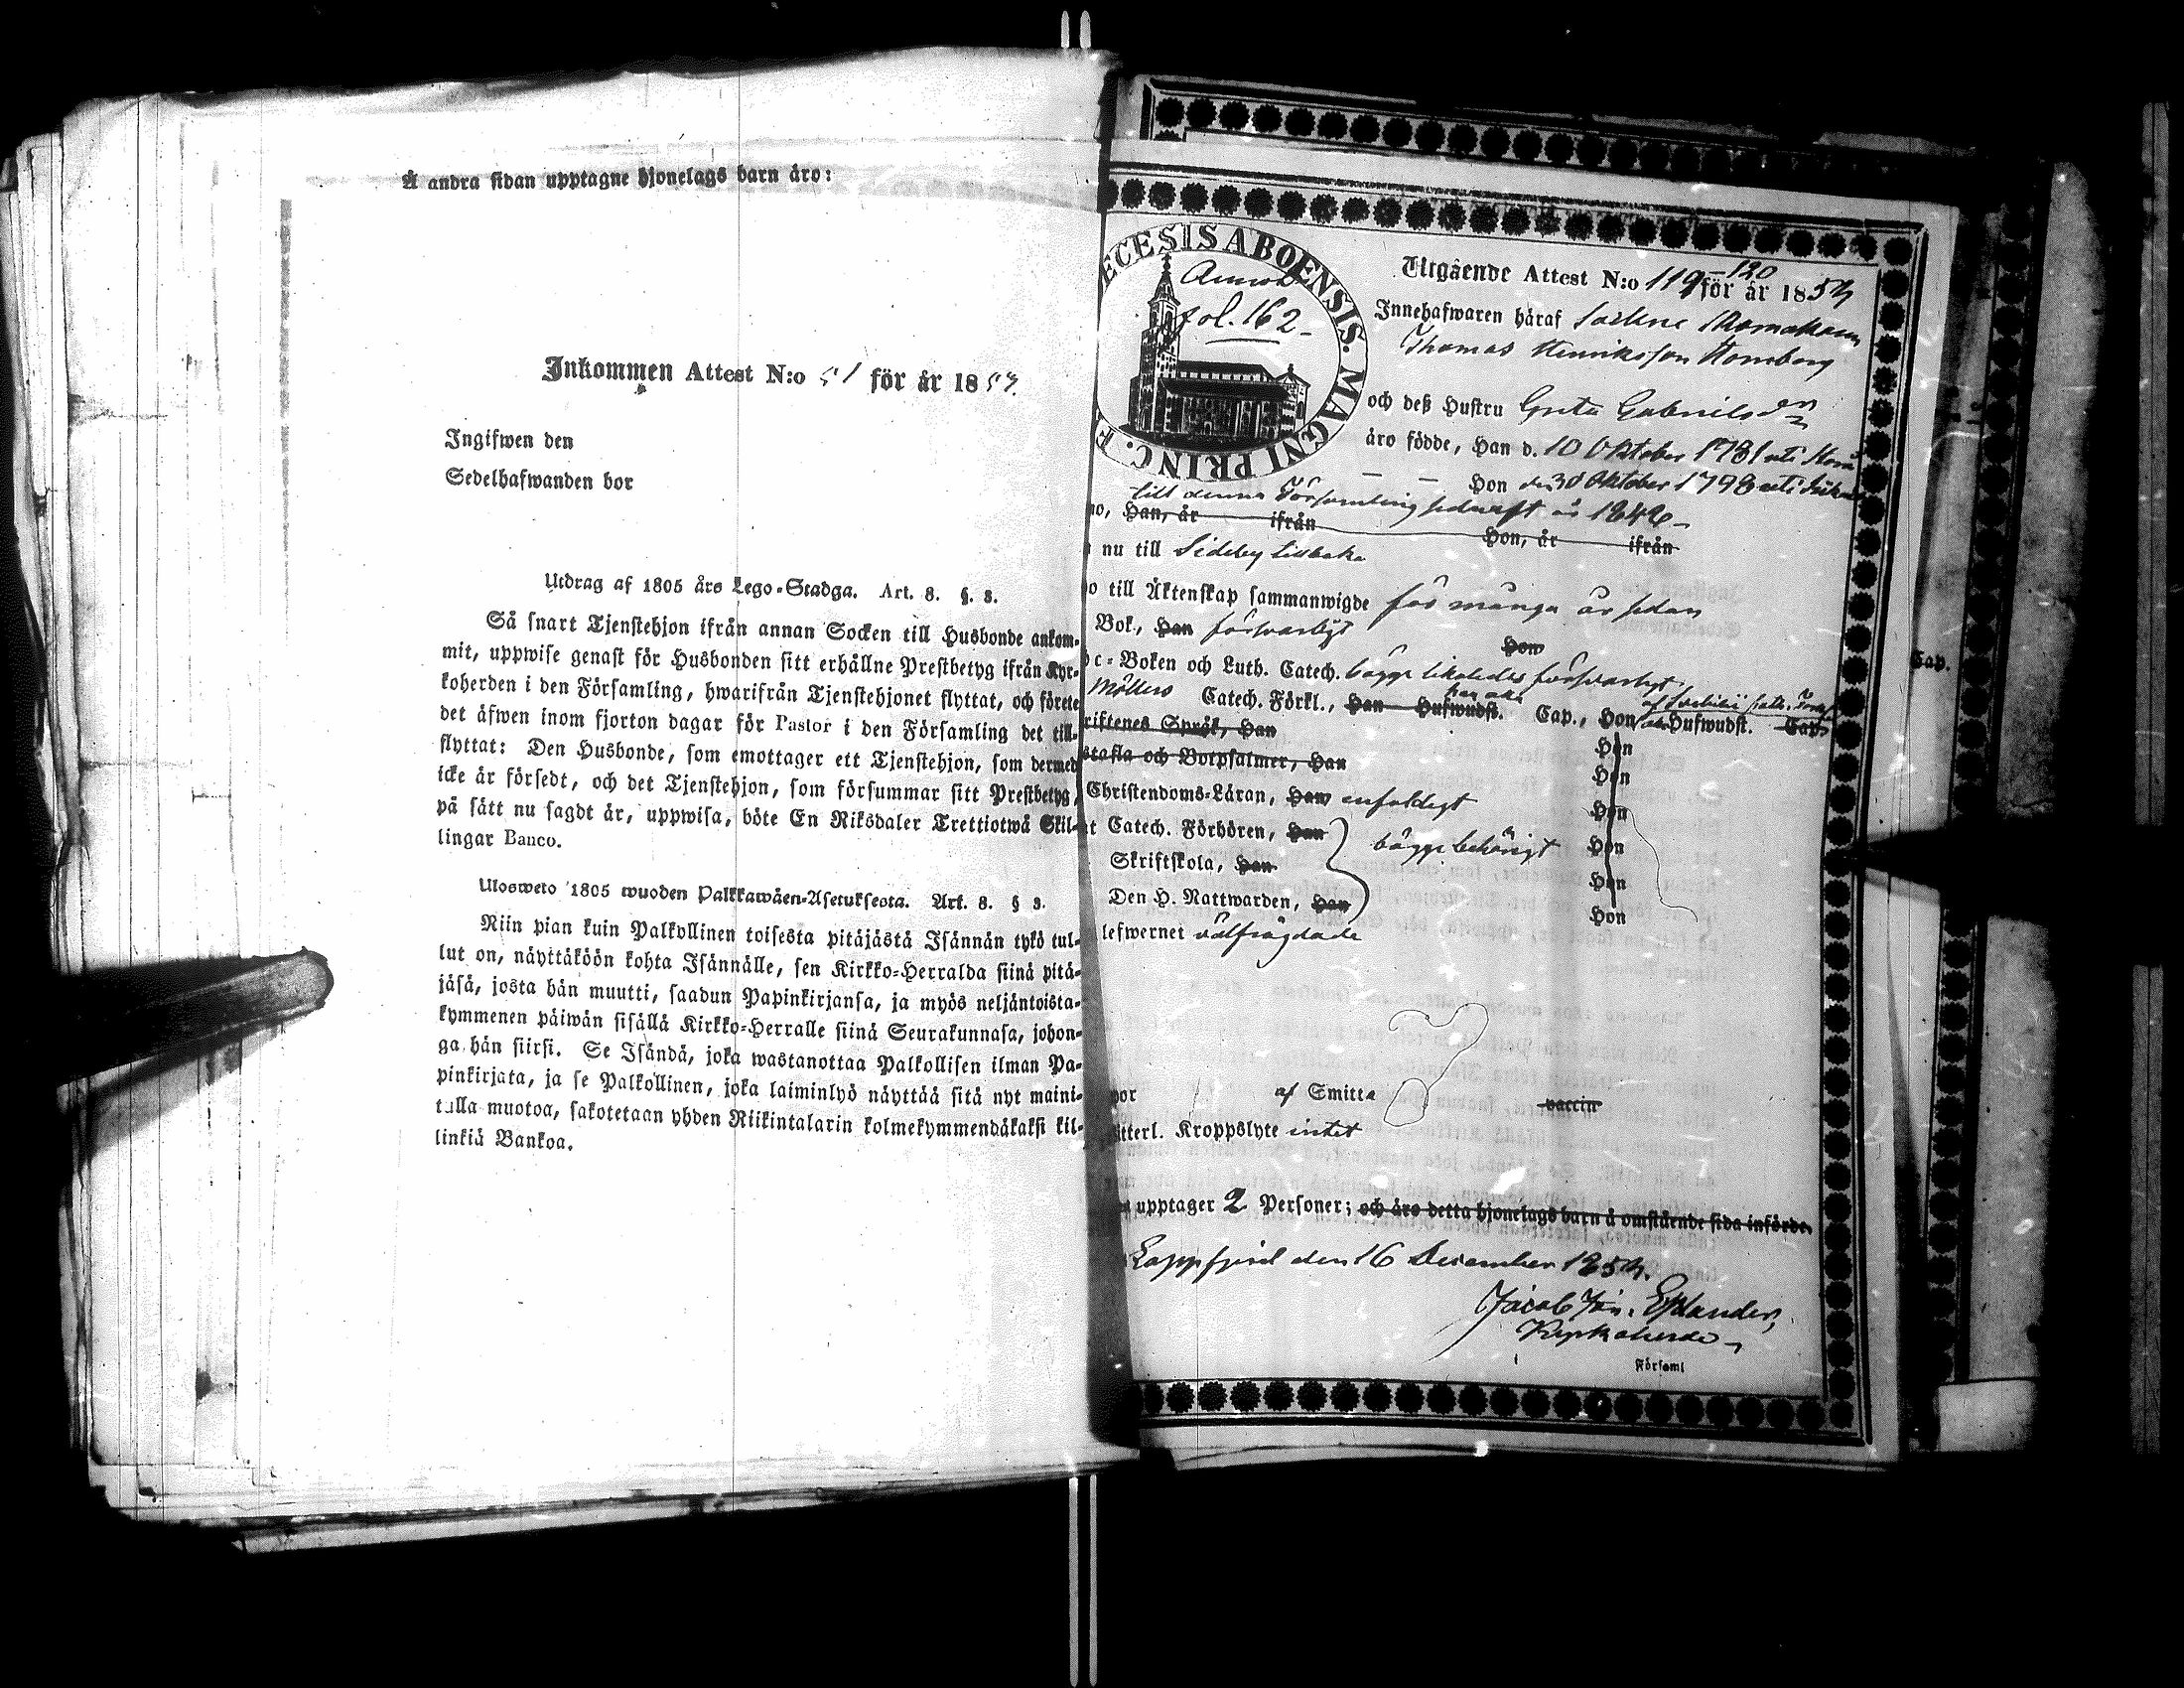 Å andra sidan upptagne hjonelags barn äro:
Inkommen Attest N:o 51 för år 1857.
Ingifwen den
Sedelhafwanden bor
Utdrag af 1805 års Lego-Stadga. Art. 8. §. 8.
Så snart Tjenstehjon ifrån annan Socken till Husbonde ankom-
mit, uppwise genast för Husbonden sitt erhållne Prestbetyg ifrån Kyr-
koherden i den Församling, hwarifrån Tjenstehjonet flyttat, och förete
det äfwen inom fjorton dagar för Pastor i den Församling det till-
flyttat: Den Husbonde, som emottager ett Tjenstehjon, som dermed
icke är försedt, och det Tjenstehjon, som försummar sitt Prestbetyg,
på sätt nu sagdt är, uppwisa, böte En Riksdaler Trettiotwå Skil-
lingar Banco.
Ulosweto 1805 wuoden Palkkawäen-Asetuksesta. Art. 8. § 8.
Niin pian kuin Palkollinen toisesta pitäjästä Isännän tykö tul-
lut on, näyttäköön kohta Isännälle, sen Kirkko-Herralda siinä pitä-
jäsä, josta hän muutti, saadun Papinkirjansa, ja myös neljäntoista-
kymmenen päiwän sisällä Kirkko-Herralle siinä Seurakunnasa, johon-
ga hän siirsi. Se Isändä, joka wastanottaa Palkollisen ilman Pa-
pinkirjata, ja se Palkollinen, joka laiminlyö näyttää sitä nyt maini-
tulla muotoa, sakotetaan yhden Riikintalarin kolmekymmendäkaksi kil-
linkiä Bankoa.
ECESIS ABOENSIS. MAGNI PRINC. F
fol. 162
Utgående Attest N:o 119-120 för år 1854
Innehafwaren häraf
Thomas Henriksson Homborg
och deß Hustru Greta Gabrielsdr
äro födde, Han d. 10 Oktober 1781 uti
Hon den 30 Oktober 1798 uti
till denna Församling år 1846
no, Han, år ifrån Hon, år ifrån
nu till Sideby tillbaka
till Äktenskap sammanwigde för många år sedan
Bok, Han försvarligt Hon
c-Boken och Luth. Catech. bägge likaledes försvarligt
Möllers Catech. Förkl., Han Hufwudst. Cap., Hon Hufwudst. Cap.
Cap.
riftenes Språk, Han Hon
stafla och Botpsalmer, Han Hon
Christendoms-Läran, Han enfaldigt Hon
Catech. Förhören, Han bägge behörigt Hon
Skriftskola, Han Hon
Den H. Nattwarden, Han Hon
lefwernet välfrägdade
af Smitta vaccin
itterl. Kroppslyte intet
upptager 2 Personer; och äro detta hjonelags barn å omstående sida införde.
Lappfjerd den 16 December 1854.
Jacob Joh. Estlander,
Kyrkoherde
Församl